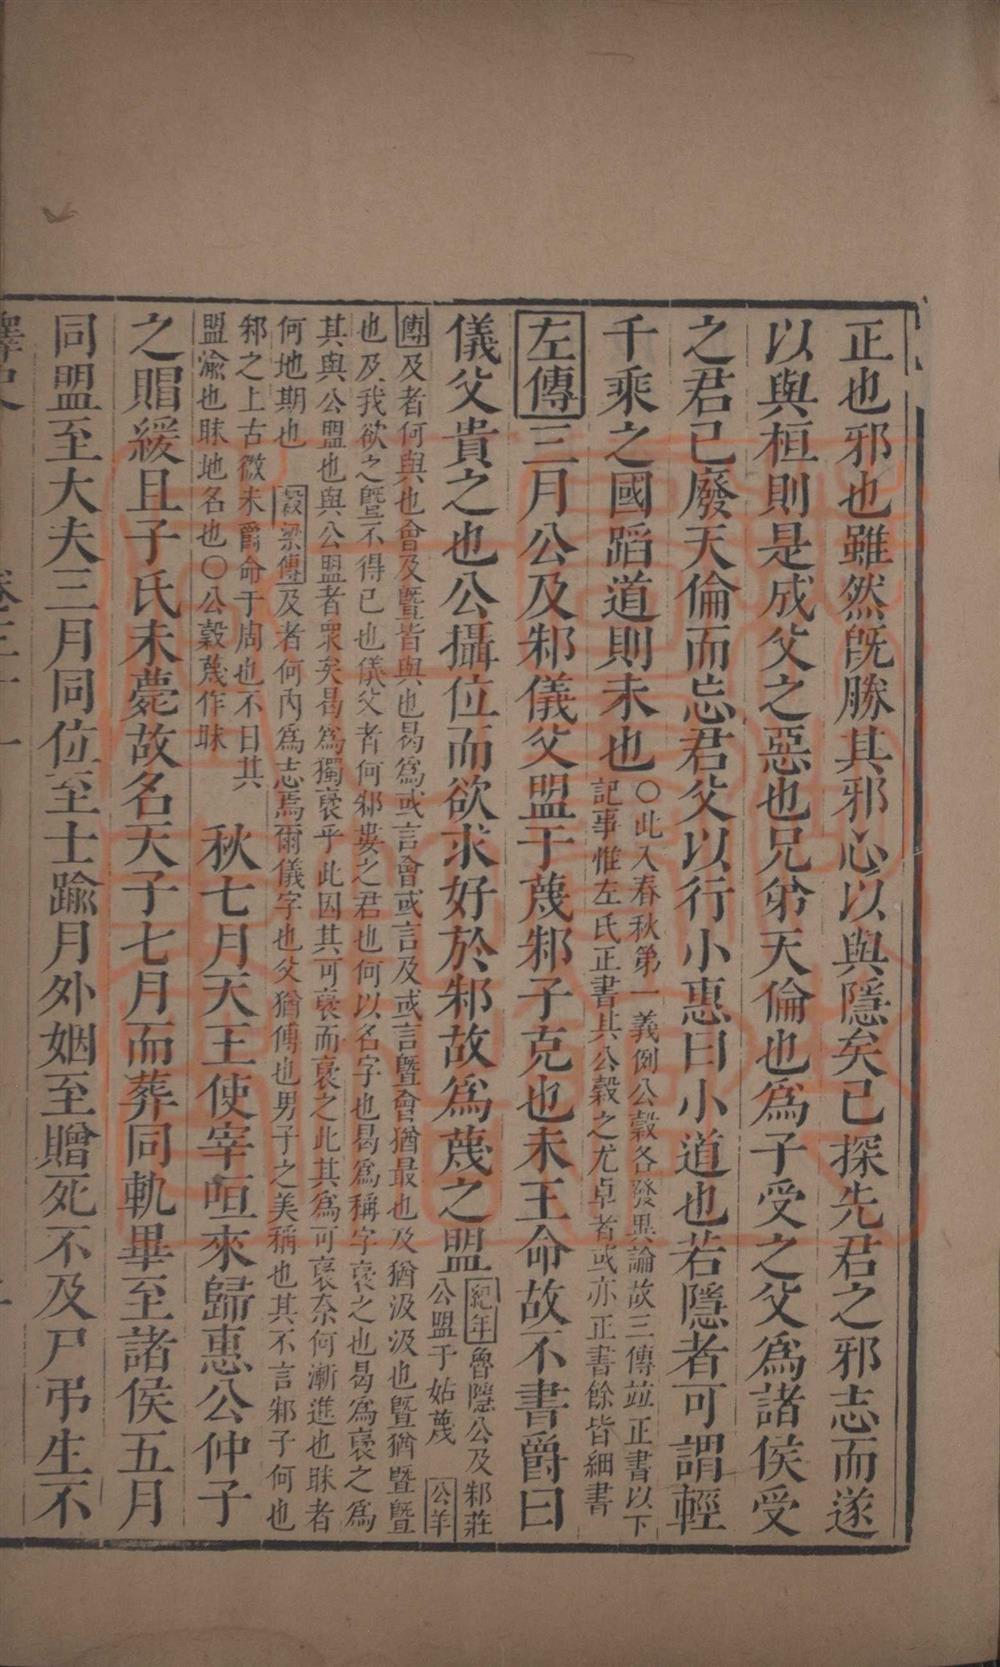 正也邪也雖然既勝其邪心以與隱矣已探先君之邪志而遂
以與桓則是成父之惡也兄弟天倫也爲子受之父爲諸侯受
之君已廢天倫而忘君父以行小惠曰小道也若隱者可謂輕
千乘之國蹈道則未也
○此入春秋第一義例公穀各發異論故三傳並正書以下
記事惟左氏正書其公穀之尤卓者或亦正書餘皆細書
左傳三月公及邾儀父盟于蔑邾子克也未王命故不書爵曰
儀父貴之也公攝位而欲求好於邾故爲蔑之盟
紀年魯隱公及邾莊
公盟于姑蔑　公羊
傳及者何與也會及暨皆與也曷爲或言會或言及或言暨會猶最也及猶汲汲也暨猶暨暨
也及我欲之暨不得已也儀父者何邾婁之君也何以名字也曷爲稱字襃之也曷爲襃之爲
其與公盟也與公盟者眾矣曷爲獨襃乎此因其可襃而襃之此其爲可襃奈何漸進也眜者
何地期也　穀梁傳及者何內爲志焉爾儀字也父猶傅也男子之美稱也其不言邾子何也
邾之上古微未爵命于周也不日其
盟渝也眜地名也○公穀蔑作眜
秋七月天王使宰咺來歸惠公仲子
之賵緩且子氏未薨故名天子七月而葬同軌畢至諸侯五月
同盟至大夫三月同位至士踰月外姻至贈死不及尸弔生不